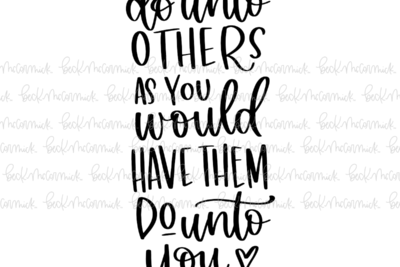 do unto
OTHERS
AS YOU
would
HAVE THEM
Do unto
you